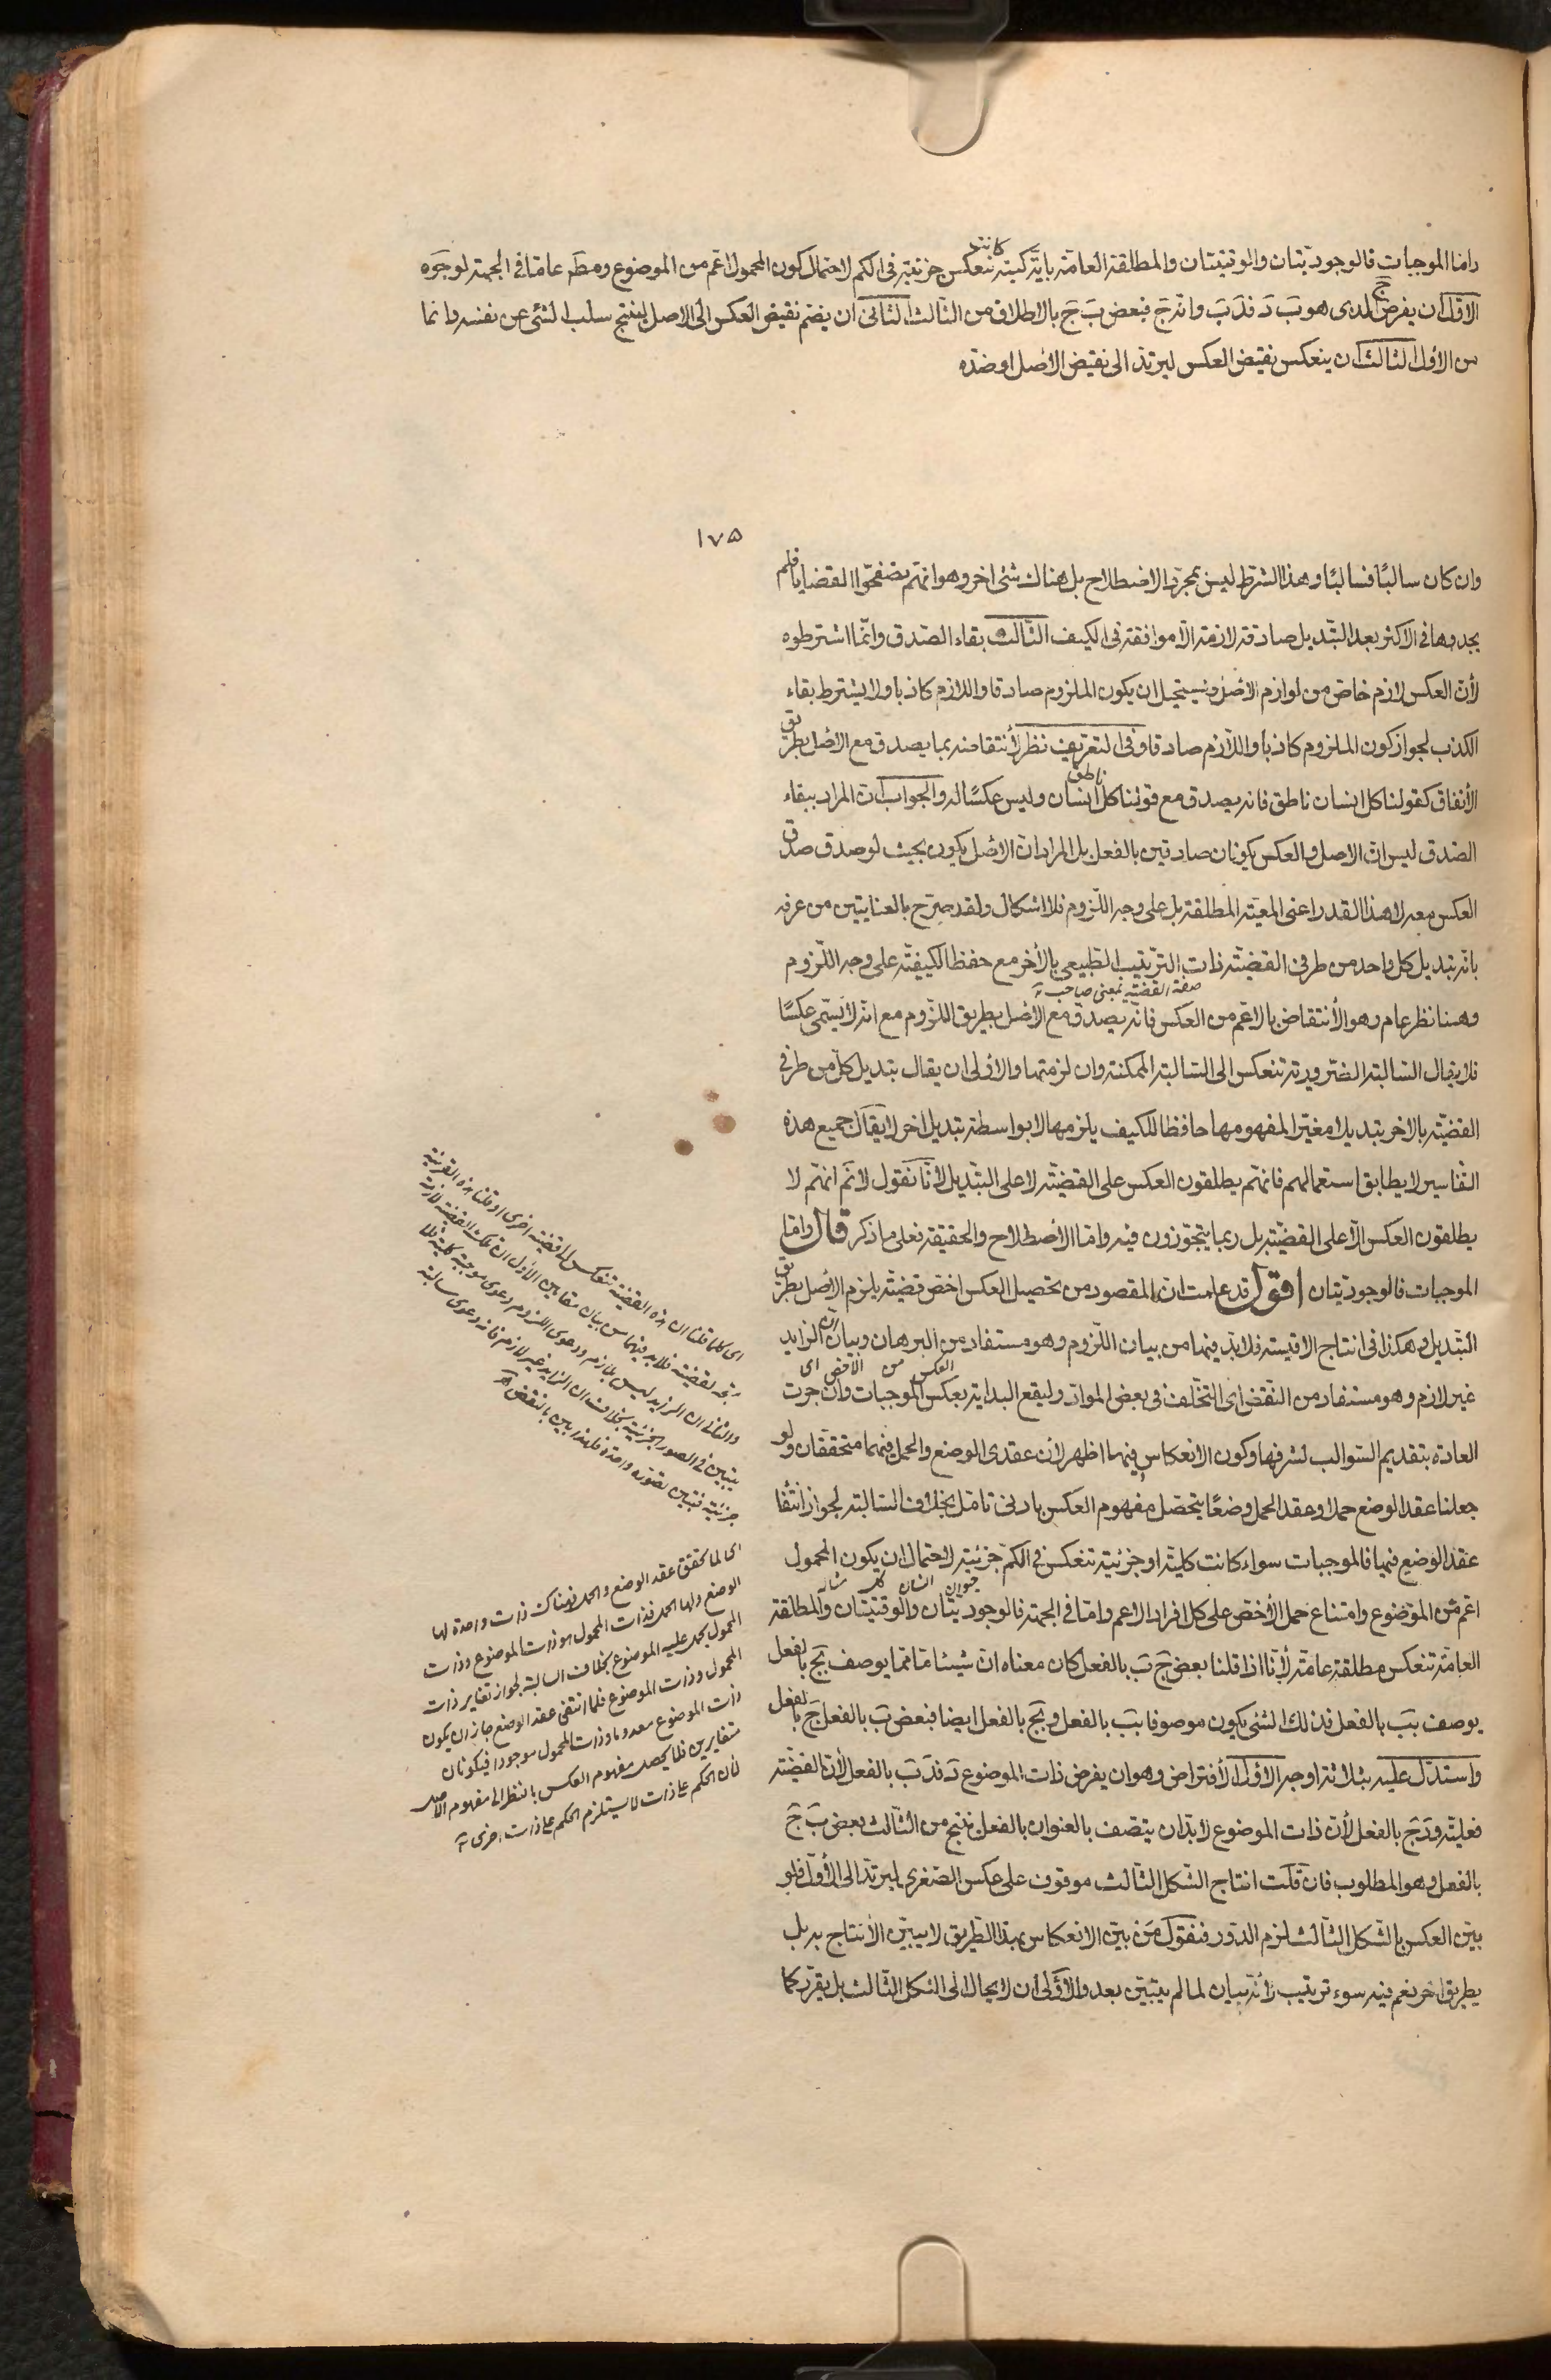 واما الموجبات فالوجوديتان والوقتيتان والمطلقة العامة باية كمية كانت تنعكس جزئية في الكم لاحتمال كون المحمول اعم من الموضوع ومطه عامة في الجهة لوجوه
الاول ان يفرض ج الذى هو بَ دَ فدَ بَ وانه جَ فبعض بَ جَ بالاطلاق من الثالث الثانى ان يضم نقيض العكس الى الاصل لينتج سلب الشئ عن نفسه دائما
من الاول الثالث ان ينعكس نقيض العكس ليرتد الى نقيض الاصل او ضده
١٧٥
وان كان سالبًا فسالبًا وهذا الشرط ليس بمجرد الاصطلاح بل هناك شئ اخر وهو انهم تصفحوا القضايا فلم
يجدوها فى الاكثر بعد التبديل صادقة لازمة الا موافقة فى الكيف الثالث بقاء الصدق وانما اشترطوه
لأن العكس لازم خاص من لوازم الاصل ويستحيل ان يكون الملزوم صادقا واللازم كاذبا ولا يشترط بقاء
الكذب لجواز كون الملزوم كاذبا واللازم صادقا وفى التعريف نظر لأنتقاضه بما يصدق مع الاصل بطريق
الأتفاق كقولنا كل انسان ناطق فانه يصدق مع قولنا كل ناطق انسان وليس عكسًا له والجواب ان المراد ببقاء
الصدق ليس ان الاصل والعكس يكونان صادقين بالفعل بل المراد ان الاصل يكون بحيث لو صدق صدق
العكس معه لا هذا القدر اعنى المعية المطلقة بل على وجه اللزوم فلا اشكال ولقد صرح بالعنايتين من عرفه
بانه تبديل كل واحد من طرفى القضية ذات الترتيب الطبيعى بالأخر مع حفظ الكيفية على وجه اللزوم
صفة القضية بمعنى صاحبة
وهنا نظر عام وهو الأنتقاض بالاعم من العكس فانه يصدق مع الأصل بطريق اللزوم مع انه لا يسمى عكسًا
فلا يقال السالبة الضرورية تنعكس الى السالبة الممكنة وان لزمتها والاولى ان يقال تبديل كل من طرفى
القضية بالاخر تبديلا مغيرا لمفهومها حافظا للكيف يلزمها لا بواسطة تبديل اخر لا يقال جميع هذه
التفاسير لا يطابق استعمالهم فانهم يطلقون العكس على القضية لا على التبديل لأنا نقول لا نم انهم لا
يطلقون العكس الا على القضية بل ربما يتجوزون فيه واما الأصطلاح والحقيقة فعلى ما ذكر قال واما
الموجبات فالوجوديتان اقول قد علمت ان المقصود من تحصيل العكس اخص قضية يلزم الاصل بطريق
التبديل وهكذا فى انتاج الاقيسة فلا بد فيهما من بيان اللزوم وهو مستفاد من البرهان وبيان ان الزايد
العكس من الاخص اى
غير لازم وهو مستفاد من النقض اى التخلف فى بعض المواد وليقع البداية بعكس الموجبات وان جرت
العادة بتقديم السوالب لشرفها وكون الانعكاس فيهما اظهر لان عقدى الوضع والحمل فيهما متحققان ولو
جعلنا عقد الوضع حملا وعقد الحمل وضعًا يتحصل مفهوم العكس بادنى تامل بخلاف السالبة لجواز انتفا
عقد الوضع فيها فالموجبات سواء كانت كلية او جزئية تنعكس فى الكم جزئية لاحتمال ان يكون المحمول
مثاله كل انسان حيوان
اعم من الموضوع وامتناع حمل الأخص على كل افراد الاعم واما فى الجهة فالوجوديتان والوقتيتان والمطلقة
العامة تنعكس مطلقة عامة لأنا اذا قلنا بعض جَ بَ بالفعل كان معناه ان شيئا ما مما يوصف بج بالفعل
يوصف ببَ بالفعل فذلك الشئ يكون موصوفا ببَ بالفعل وبجَ بالفعل ايضا فبعض بَ بالفعل جَ بالفعل
واستدل عليه بثلاثة اوجه الاول الأفتراض وهو ان يفرض ذات الموضوع دَ فدَ بَ بالفعل لأن القضية
فعلية ودَ جَ بالفعل لأن ذات الموضوع لابد ان يتصف بالعنوان بالفعل ينتج من الثالث بعض بَ جَ
بالفعل وهو المطلوب فان قلت انتاج الشكل الثالث موقوف على عكس الصغرى ليرتد الى الأول فلو
بين العكس بالشكل الثالث لزم الدور فنقول من بين الانعكاس بهذا الطريق لا يبين الأنتاج به بل
بطريق اخر نعم فيه سوء ترتيب لأنه بيان لما لم يتبين بعد والأولى ان لا يحال الى الشكل الثالث بل يقرر كما
اى كلما قلنا ان هذه القضية تنعكس الى قضية اخرى او قلنا هذه القرينة
تنتج لقضية فلا بد فيهما من بيان مقامين الأول ان تلك القضية لازمة
والثانى ان الزايد ليس بلازم ودعوى اللزوم دعوى موجبة كلية فلا
يتبين فى الصور الجزئية بخلاف ان الزايد غير لازم فانه دعوى سالبة
جزئية فتبين بصورة واحدة فلهذا بين بالنقض
اى لما تحقق عقد الوضع والحمل فهناك ذات واحدة لها
الوضع ولها الحمل فذات المحمول هو ذات الموضوع وذات
المحمول يحمل عليه الموضوع بخلاف السالبة لجواز تغاير ذات
المحمول وذات الموضوع فلما انتفى عقد الوضع جاز ان يكون
ذات الموضوع معدوما وذات المحمول موجودا فيكونان
متغايرين فلا يحصل مفهوم العكس بالنظر الى مفهوم الاصل
لأن الحكم على ذات لا يستلزم الحكم على ذات اخرى